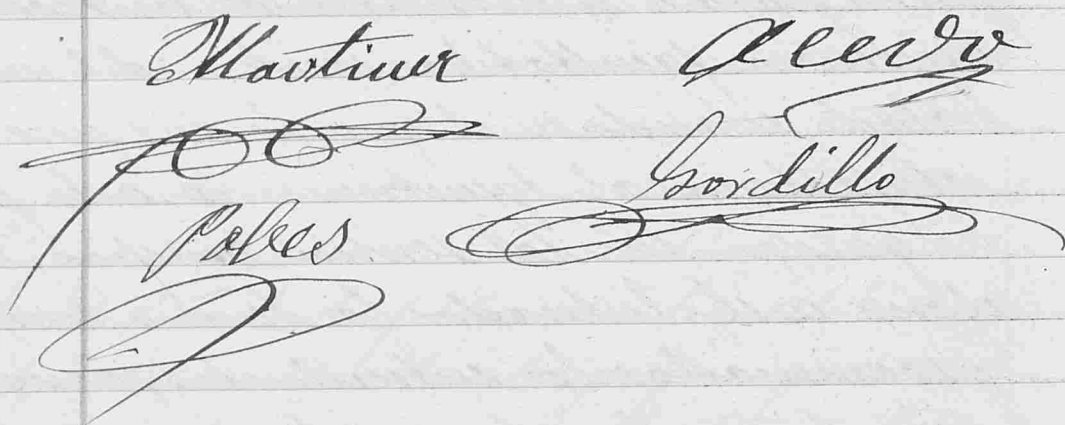 Martinez Acevo
Gordillo
Pases